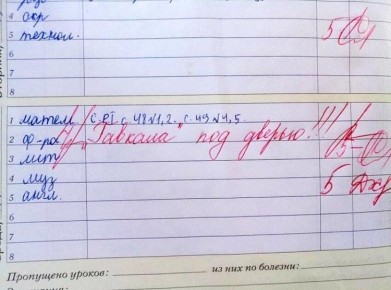 4 окр
5 технол. 5
6
7
8
1 матем С. РТ с. 48 №1,2. с. 49 №4,5.
2 ф-ра "Гавкала" под дверью!!!
3 лит 5-
4 муз
5 англ. 5
6
7
8
Пропущено уроков: из них по болезни: